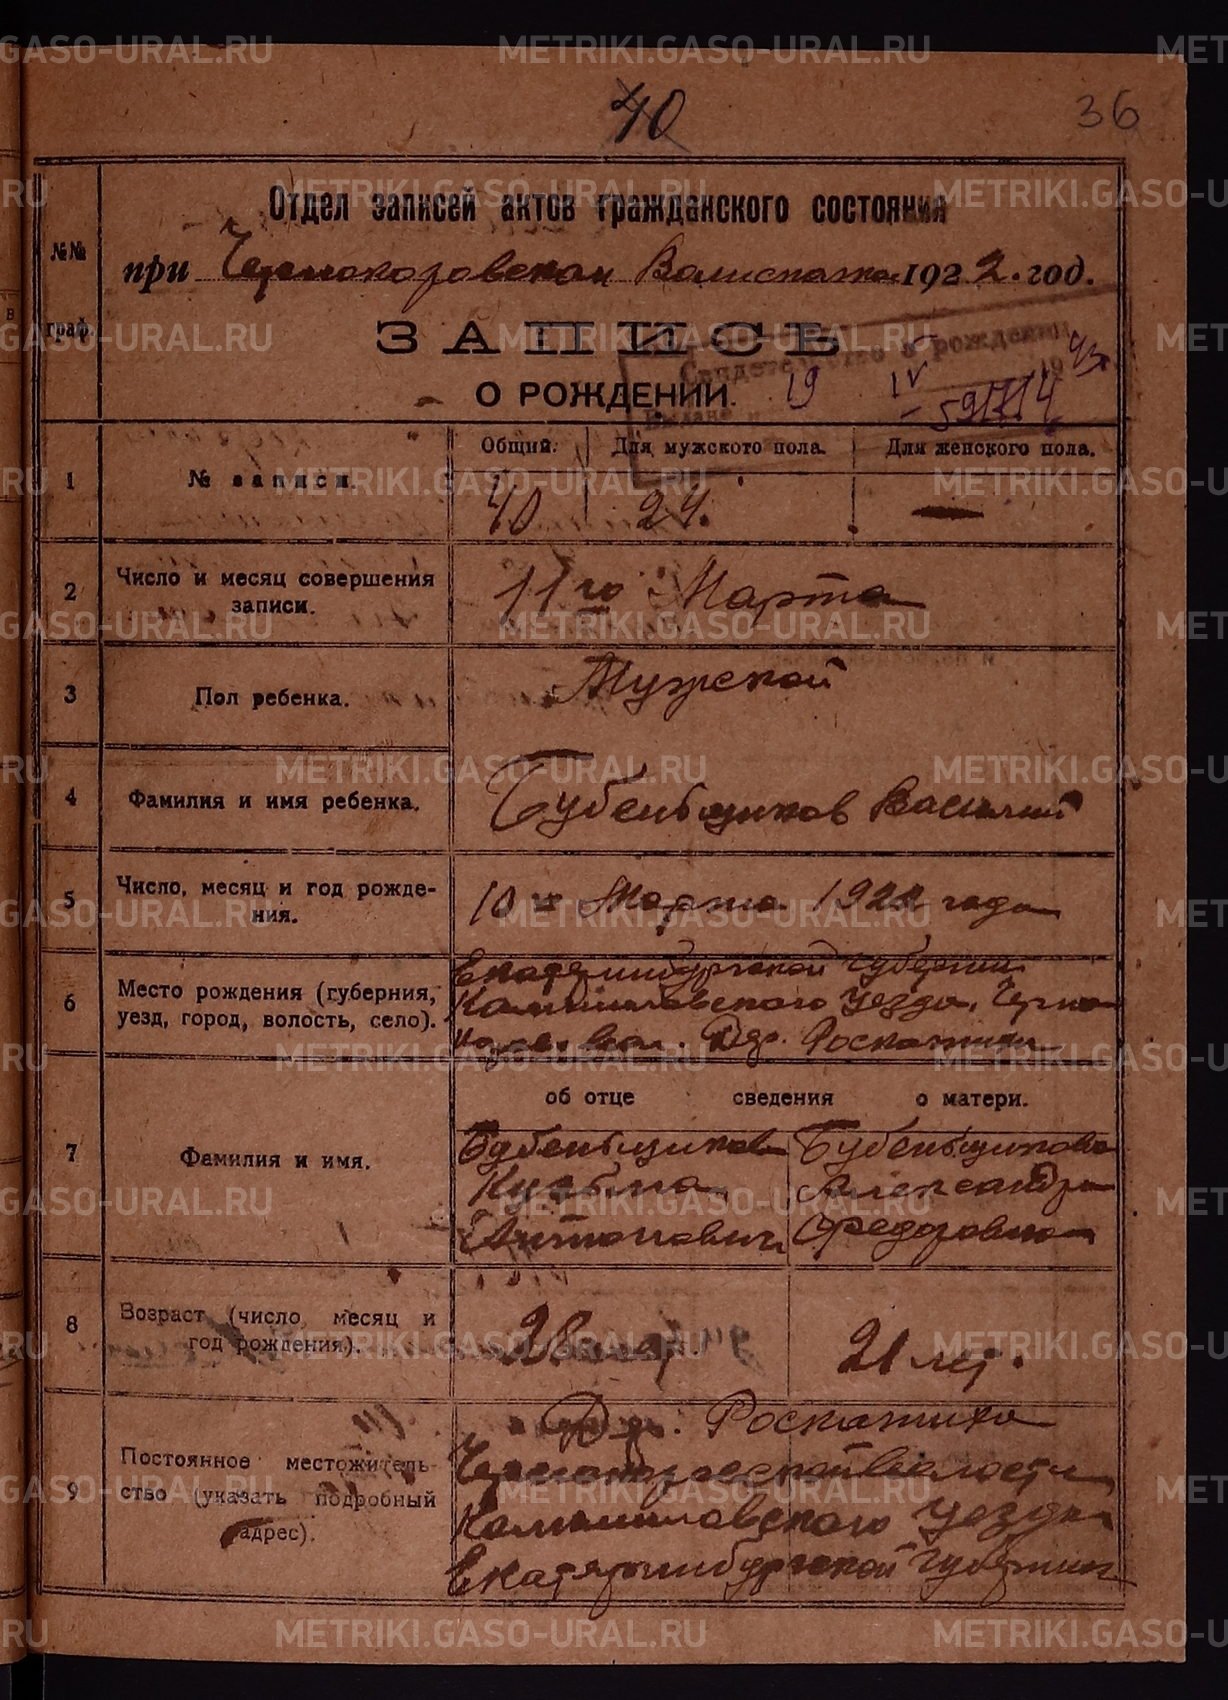 40
36
Отдел записей актов гражданского состояния
№№ граф.
при Чернокоровском Волисполкоме 1922 год.
ЗАПИСЬ
О РОЖДЕНИИ.
Свидетельство о рождении
Выдано 19 IV 19
1 № записи.
Общий. Для мужского пола. Для женского пола.
40 24. —
2 Число и месяц совершения
записи.
11го Марта
3 Пол ребенка.
Мужской
4 Фамилия и имя ребенка.
Бубеньщиков Василий
5 Число, месяц и год рожде-
ния.
10го Марта 1922 года
6 Место рождения (губерния,
уезд, город, волость, село).
Екатеринбургской губернии
Камышловского уезда, Черно
кор. вол. Дер. Роскатиха
об отце сведения о матери.
7 Фамилия и имя.
Бубеньщиков
Кузьма
Антонович
Бубеньщикова
Александра
Федоровна
8 Возраст (число, месяц и
год рождения).
28 лет.
21 лет.
9 Постоянное местожитель-
ство (указать подробный
адрес).
Дер. Роскатиха
Чернокоровской Волости
Камышловского уезда
Екатеринбургской губернии
METRIKI.GASO-URAL.RU